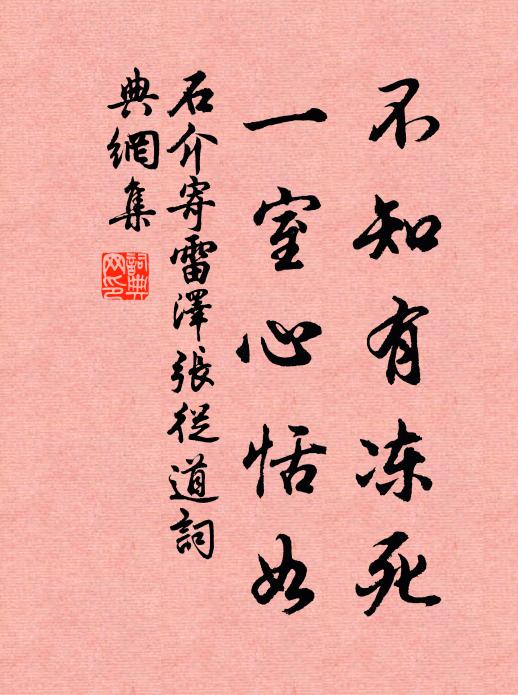 不知有冻死
一室心恬如
石介寄雷澤張從道詞
典網集
詞典网印